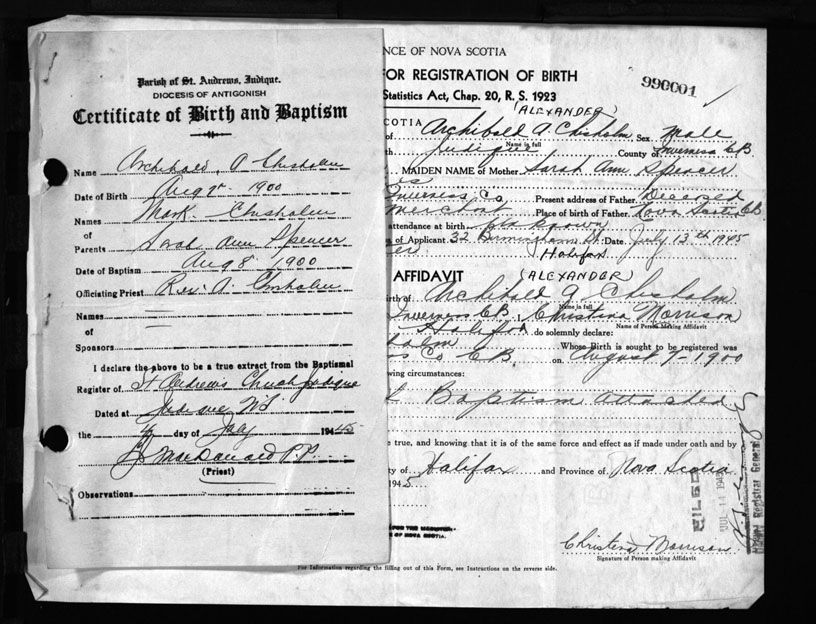 Parish of St. Andrews, Judique.
DIOCESIS OF ANTIGONISH
Certificate of Birth and Baptism
Name Archibald A Chisholm
Date of Birth Aug 7 1900
Names Mark Chisholm
of
Parents Sarah Ann Spencer
Date of Baptism Aug 8 1900
Officiating Priest Rev. A. Chisholm
Names
of
Sponsors
I declare the above to be a true extract from the Baptismal
Register of St Andrews Church Judique
Dated at Judique N.S.
the day of July 1945
MacDonald P.P.
(Priest)
Observations
NCE OF NOVA SCOTIA
FOR REGISTRATION OF BIRTH
Statistics Act, Chap. 20, R. S. 1923
990001
(ALEXANDER)
COTIA
of Archibald A. Chisholm Sex Male
Name in full
th Judique County of Inverness C.B.
MAIDEN NAME of Mother Sarah Ann Spencer
Inverness Co Present address of Father Deceased
Merchant Place of birth of Father Nova Scotia C.B.
attendance at birth
s of Applicant 32 Birmingham St. Date July 13th 1945
Halifax
AFFIDAVIT (ALEXANDER)
birth of Archibald A. Chisholm
Name in full
Inverness C.B., Christina Morrison
Name of Person Making Affidavit
Halifax do solemnly declare:
holm Whose Birth is sought to be registered was
Co C.B. on August 7-1900
wing circumstances:
Baptism attached
e true, and knowing that it is of the same force and effect as if made under oath and by
ty of Halifax and Province of Nova Scotia
1945
FILED
JUL 14 194
Registrar General
OF NOVA SCOTIA.
Christina Morrison
Signature of Person making Affidavit
For Information regarding the filling out of this Form, see Instructions on the reverse side.